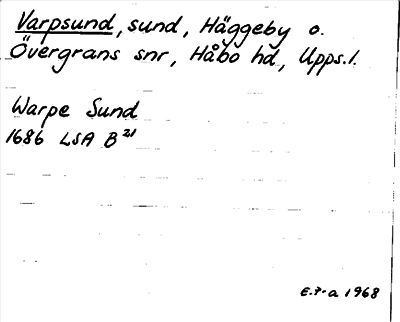 Varpsund, sund, Häggeby o.
Övergrans snr, Håbo hd, Upps.l.
Warpe Sund
1686 LSA B 21
E.P-a 1968